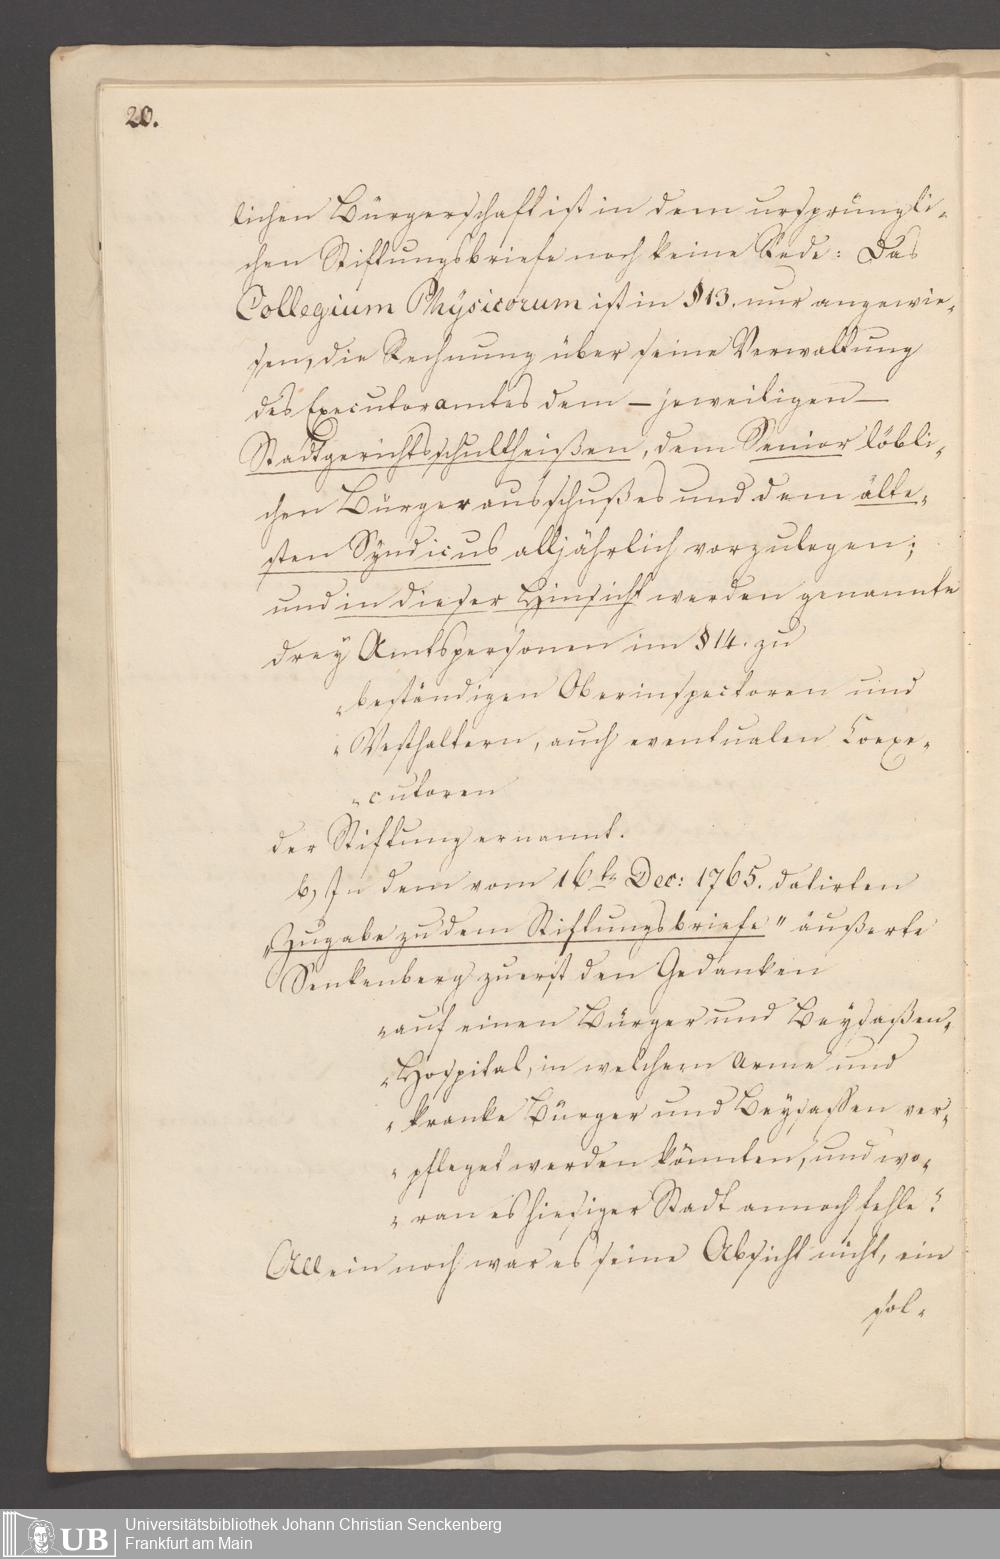 20.
lichen Bürgerschaft ist in dem ursprüngli-
chen Stiftungsbriefe noch keine Rede: Das
Collegium Physicorum ist in § 13. nur angewie-
sen, die Rechnung über seine Verwaltung
des Executoramtes dem – jeweiligen –
Stadtgerichtsschultheißen, dem Senior löbli-
chen Bürgerausschußes und dem älte-
sten Syndicus alljährlich vorzulegen;
und in dieser Hinsicht werden genannte
drey Amtspersonen im § 14. zu
„beständigen Oberinspectoren und
„Vesthaltern, auch eventualen Coexe-
„cutoren
der Stiftung ernannt.
b, In dem vom 16ts Dec: 1765. datirten
„Zugabe zu dem Stiftungsbriefe" äußerte
Senkenberg zuerst den Gedanken
„auf einen Bürger und Beysaßen-
„Hospital, in welchem arme und
„kranke Bürger und Beysassen ver-
„pfleget werden könnten, und wo-
„ran es hiesiger Stadt annoch fehle“.
Allein noch war es seine Absicht nicht, ein
sol-
Universitätsbibliothek Johann Christian Senckenberg
Frankfurt am Main
UB